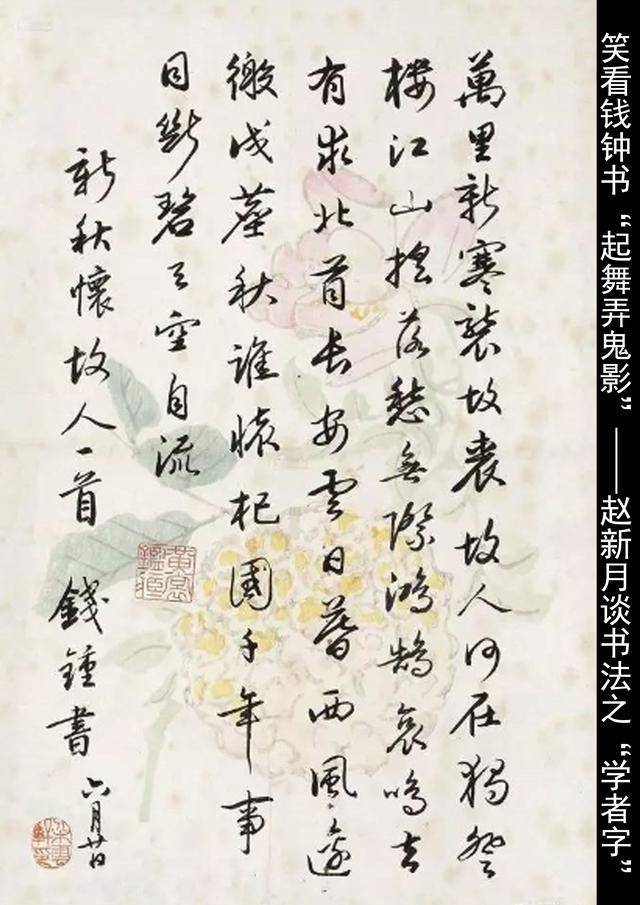 笑看钱钟书“起舞弄鬼影”——赵新月谈书法之“学者字”
萬里新寒襲故裘故人何在獨登
樓江山搖落愁無際鴻鵠哀鳴去
有求北首長安雲日暮西風邊
徼戍臺秋誰懷杞國千年事
目斷碧天空自流
新秋懷故人一首 錢鍾書 六月廿日